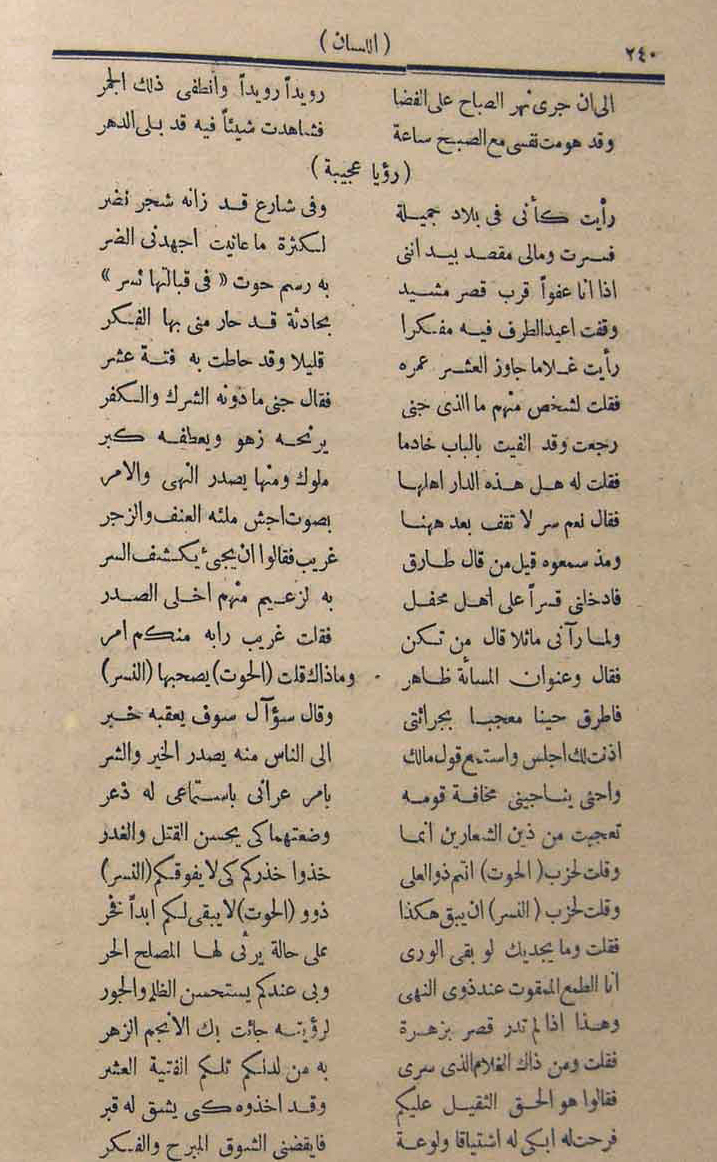 ٢٤٠ (اللسان)
الى ان جرى نهر الصباح على الفضا رويداً رويداً وانطفى ذلك الجمر
وقد هومت نفسى مع الصبح ساعة فشاهدت شيئاً فيه قد بلى الدهر
(رؤيا عجيبة)
رأيت كأنى فى بلاد جميلة وفى شارع قد زانه شجر نضر
فسرت ومالى مقصد بيد اننى لكثرة ما عانيت اجهدنى الضر
اذا انا عفواً قرب قصر مشيد به رسم حوت « فى قبالتها نسر »
وقفت اعيد الطرف فيه مفكرا بحادثة قد حار منى بها الفكر
رأيت غلاما جاوز العشر عمره قليلا وقد حاطت به فتة عشر
فقلت لشخص منهم ما الذى جنى فقال جنى ما دونه الشرك والكفر
رجعت وقد الفيت بالباب خادما يرنحه زهو ويعطفه كبر
فقلت له هل هذه الدار اهلها ملوك ومنها يصدر النهى والامر
فقال نعم سر لا تقف بعد ههنا بصوت اجش ملئه العنف والزجر
ومذ سمعوه قيل من قال طارق غريب فقالوا ان يجئ يكشف السر
فادخلنى قسراً على اهل محفل به لزعيم منهم اخلى الصدر
ولما رآنى ماثلا قال من تكن فقلت غريب رابه منكم امر
فقال وعنوان المسائة ظاهر وماذاك قلت (الحوت) يصحبها (النسر)
فاطرق حينا معجبا بجرائتى وقال سؤآل سوف يعقبه خبر
اذنت لك اجلس واستمع قول مالك الى الناس منه يصدر الخير والشر
واحنى يناجينى مخافة قومه بامر عرانى باستماعى له ذعر
تعجبت من ذين الشعارين انما وضعتهما كى يحسن القتل والغدر
وقلت لحزب (الحوت) انتم ذو العلى خذوا حذركم كى لا يفوقكم (النسر)
وقلت لحزب (النسر) ان يبق هكذا ذوو (الحوت) لا يبقى لكم ابداً فخر
فقلت وما يجديك لو بقى الورى على حالة يرثى لها المصلح الحر
انا الطمع الممقوت عند ذوى النهى وبى عندكم يستحسن الظلم والجور
وهذا اذا لم تدر قصر بزهرة لرؤيته جائت بك الانجم الزهر
فقلت ومن ذاك الغلام الذى سرى به من لدنكم تلكم الفتية العشر
فقالوا هو الحق الثقيل عليكم وقد اخذوه كى يشق له قبر
فرحت له ابكى له اشتياقا ولوعة فايقضنى الشوق المبرح والفكر